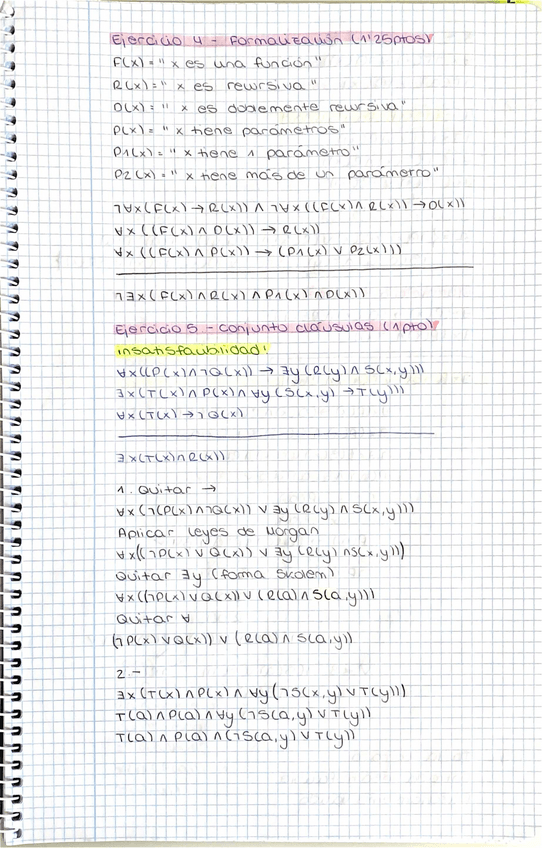 Ejercicio 4 - Formalización (1'25ptos)
F(x) = " x es una función"
R(x) = " x es recursiva"
D(x) = " x es doblemente recursiva"
P(x) = " x tiene parámetros"
P1(x) = " x tiene 1 parámetro"
P2(x) = " x tiene más de un parámetro"
¬∀x(F(x) → R(x)) ∧ ¬∀x((F(x) ∧ R(x)) → D(x))
∀x ((F(x) ∧ D(x)) → R(x))
∀x ((F(x) ∧ P(x)) → (P1(x) ∨ P2(x)))
¬∃x(F(x) ∧ R(x) ∧ P1(x) ∧ D(x))
Ejercicio 5 - conjunto cláusulas (1pto)
insatisfacibilidad:
∀x((P(x) ∧ ¬Q(x)) → ∃y (R(y) ∧ S(x,y)))
∃x(T(x) ∧ P(x) ∧ ∀y (S(x,y) → T(y)))
∀x(T(x) → ¬Q(x)
∃x(T(x) ∧ R(x))
1. Quitar →
∀x(¬(P(x) ∧ ¬Q(x)) ∨ ∃y (R(y) ∧ S(x,y)))
Aplicar leyes de Morgan
∀x((¬P(x) ∨ Q(x)) ∨ ∃y (R(y) ∧ S(x,y)))
Quitar ∃y (forma Skolem)
∀x((¬P(x) ∨ Q(x)) ∨ (R(a) ∧ S(a,y)))
Quitar ∀
(¬P(x) ∨ Q(x)) ∨ (R(a) ∧ S(a,y))
2.-
∃x(T(x) ∧ P(x) ∧ ∀y (¬S(x,y) ∨ T(y)))
T(a) ∧ P(a) ∧ ∀y (¬S(a,y) ∨ T(y))
T(a) ∧ P(a) ∧ (¬S(a,y) ∨ T(y))